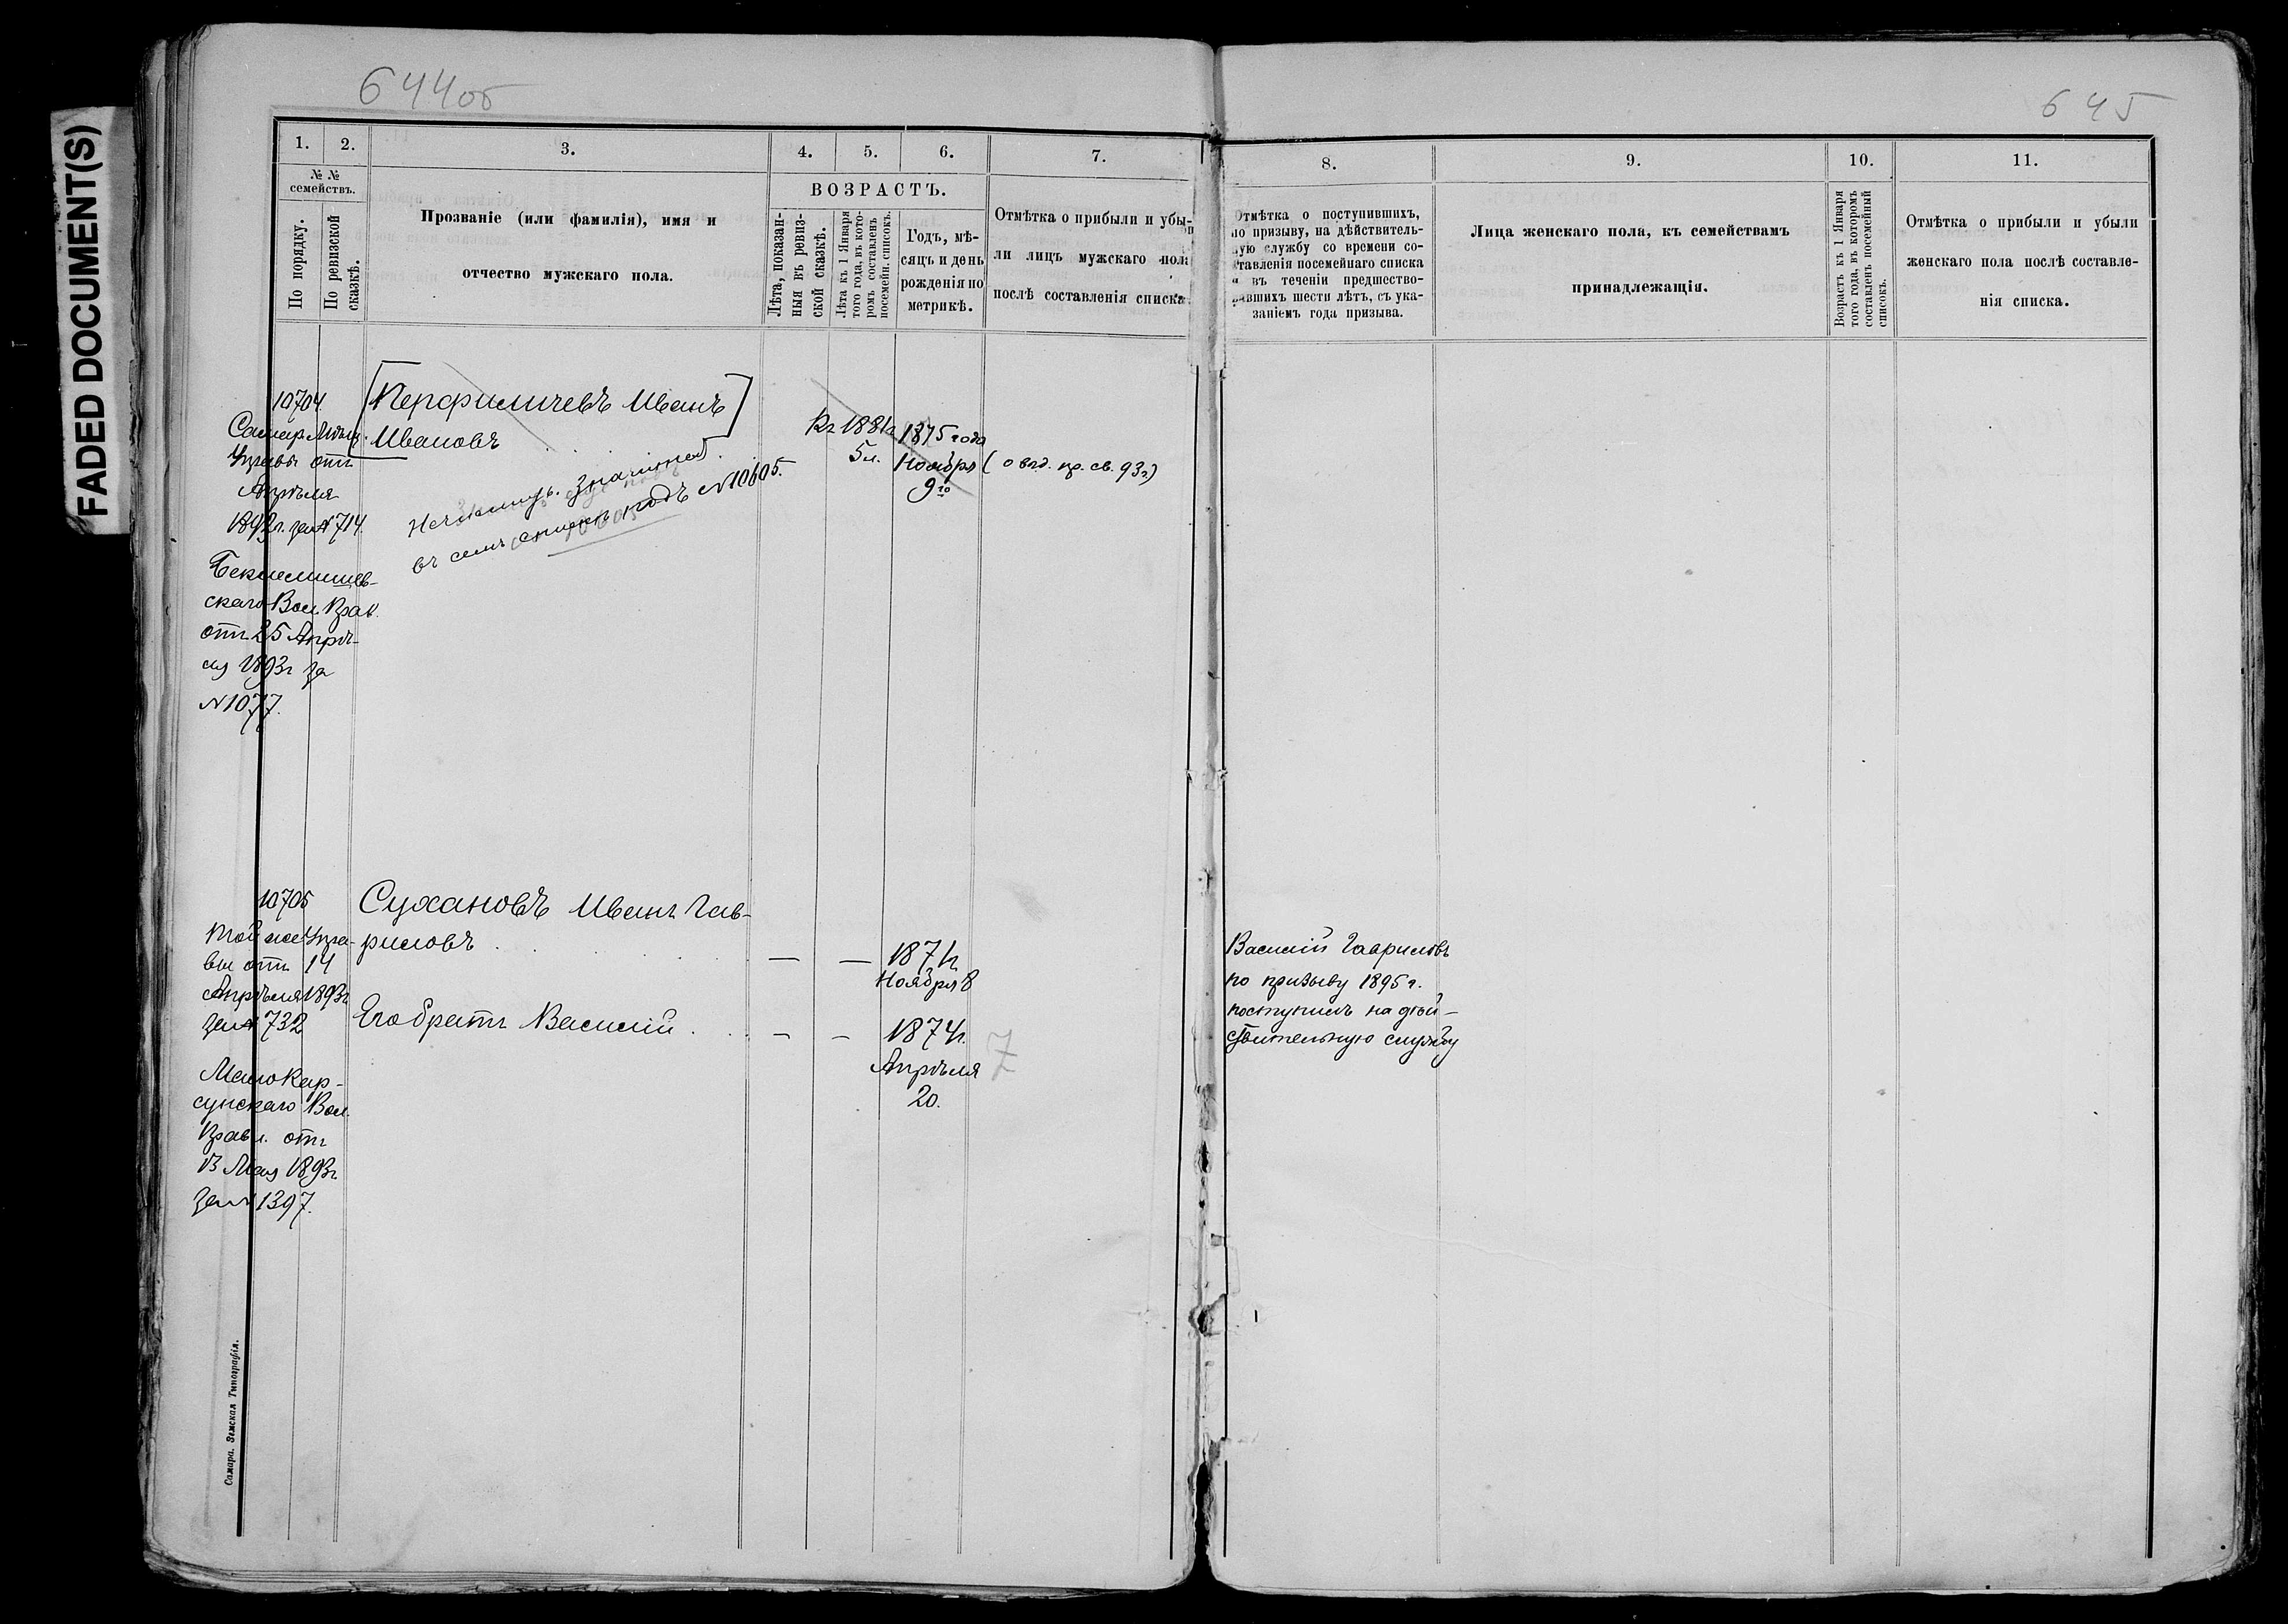 FADED DOCUMENT(S)
644об
645
1.
2.
3.
4.
5.
6.
7.
8.
9.
10.
11.
№ №
семействъ.
По порядку.
По ревизской
сказкѣ.
Прозваніе (или фамилія), имя и
отчество мужскаго пола.
ВОЗРАСТЪ.
Лѣта, показан-
ныя въ ревиз-
ской сказкѣ.
Лѣта къ 1 Января
того года, въ кото-
ромъ составленъ
посемейн. списокъ.
Годъ, мѣ-
сяцъ и день
рожденія по
метрикѣ.
Отмѣтка о прибыли и убы-
ли лицъ мужскаго пола
послѣ составленія списка.
Отмѣтка о поступившихъ,
по призыву, на дѣйствитель-
ную службу со времени со-
ставленія посемейнаго списка
и въ теченіи предшество-
вавшихъ шести лѣтъ, съ ука-
заніемъ года призыва.
Лица женскаго пола, къ семействамъ
принадлежащія.
Возрастъ къ 1 Января
того года, въ которомъ
составленъ посемейный
списокъ.
Отмѣтка о прибыли и убыли
женскаго пола послѣ составле-
нія списка.
10704
Самар. Мѣщ.
Управы отъ
Апрѣля
1892г. за № 714.
Бекмелишев-
скаго Вол. Прав.
отъ 25 Апрѣ-
ля 1893г за
№ 1077.
[Перфиличевъ Иванъ]
Ивановъ
значится
въ сем. списк. подъ № 10605.
Къ 1881г
5л.
1875 года
Ноября
9го
10705
Той же Упра-
вы отъ 14
Апрѣля 1893г
за № 732
Малокар-
сунскаго Вол.
Правл. отъ
13 Мая 1893г
за № 1397.
Сухановъ Иванъ Гав-
риловъ
— — 1871г
Ноября 8
Его братъ Василій
— — 1874г.
Апрѣля
20.
7
Василій Гавриловъ
по призыву 1895 г.
поступилъ на дѣй-
ствительную службу
Самара. Земская Типографія.